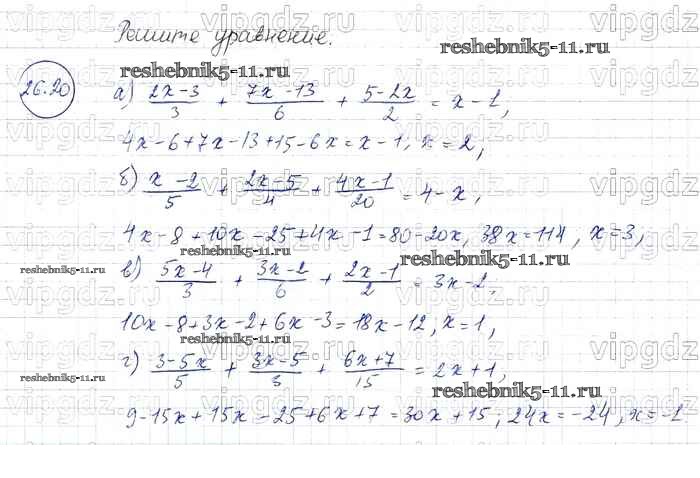 Решите уравнение.
reshebnik5-11.ru
26.20
reshebnik5-11.ru
а) (2x-3)/3 + (7x-13)/6 + (5-2x)/2 = x-1,
4x-6+7x-13+15-6x=x-1, x=2,
б) (x-2)/5 + (2x-5)/4 + (4x-1)/20 = 4-x,
4x-8+10x-25+4x-1=80-20x, 38x=114, x=3,
reshebnik5-11.ru
reshebnik5-11.ru
reshebnik5-11.ru
в) (5x-4)/3 + (3x-2)/6 + (2x-1)/2 = 3x-2,
10x-8+3x-2+6x-3=18x-12, x=1,
reshebnik5-11.ru
г) (3-5x)/5 + (3x-5)/3 + (6x+7)/15 = 2x+1,
reshebnik5-11.ru
reshebnik5-11.ru
9-15x+15x-25+6x+7=30x+15; 24x=-24, x=-1
vipgdz.ru